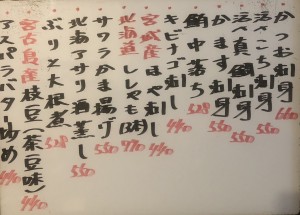 かつお刺身 660
活〆こち刺身 550
活〆真鯛刺身 550
かます刺身 550
鮪中落ち 528
キビナゴ刺し 440
宮城産ほや刺し 440
北海道ししゃも(3本) 770
サクラかき揚げ 550
北海アサリ酒蒸し 550
ぶりと大根煮 528
宮古島産枝豆(茶豆味) 440
アスパラバター炒め 440